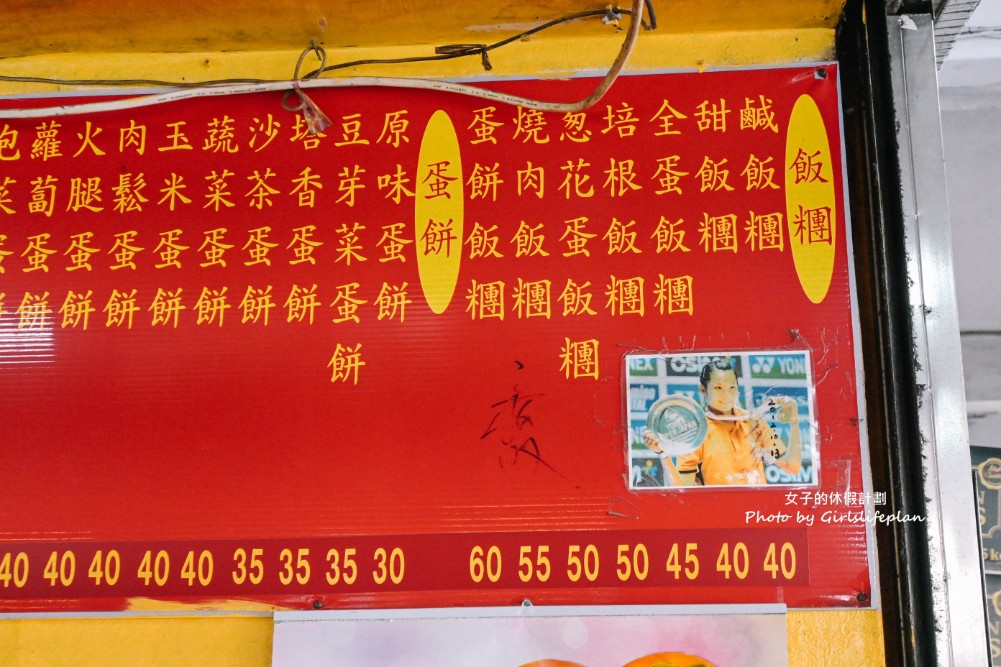 飯糰
鹹飯糰
甜飯糰
全蛋飯糰
培根飯糰
葱花蛋飯糰
燒肉飯糰
蛋餅飯糰
蛋餅
原味蛋餅
豆芽菜蛋餅
塔香蛋餅
沙茶蛋餅
蔬菜蛋餅
玉米蛋餅
肉鬆蛋餅
火腿蛋餅
蘿蔔蛋餅
泡菜蛋餅
40 40 40 40 40 35 35 35 30 60 55 50 50 45 40 40
NEX OSIM YON
OSIM
2012.10.13
女子的休假計劃
Photo by Girlslifeplan